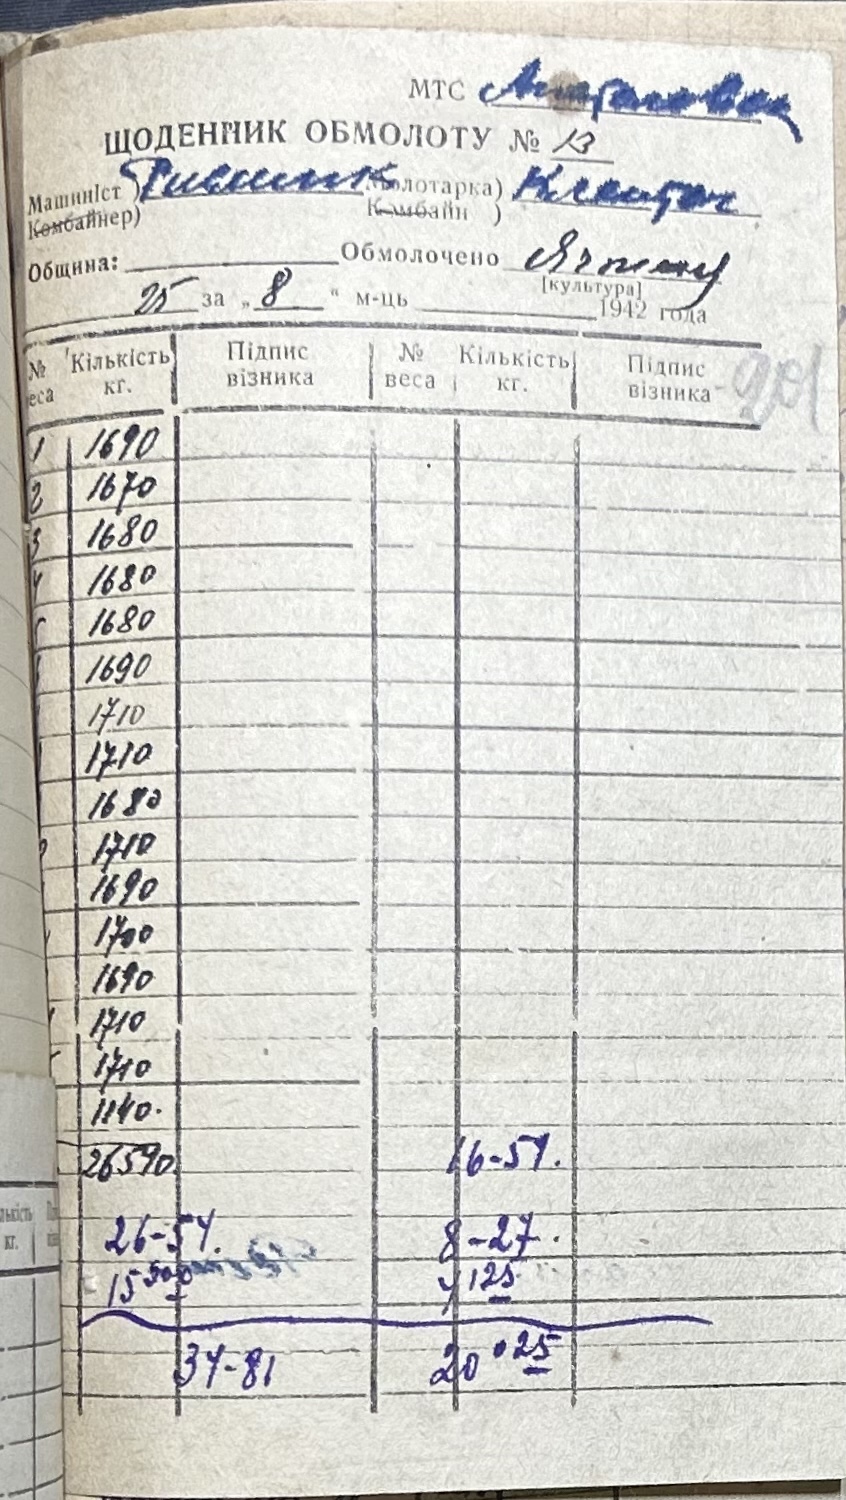 МТС
ЩОДЕННИК ОБМОЛОТУ № 13
Машиніст ) Молотарка)
Комбайнер) Комбайн )
Община: Обмолочено
[культура]
25 за „ 8 “ м-ць 1942 года
№ веса Кількість кг. Підпис візника № веса Кількість кг. Підпис візника
1 1690
2 1670
3 1680
4 1680
5 1680
1690
1710
1710
1680
1710
1690
1700
1690
1710
1710
1140.
26590 16-54.
26-54. 8-27.
15 500 4 125
34-81 20 025
лькість
кг.